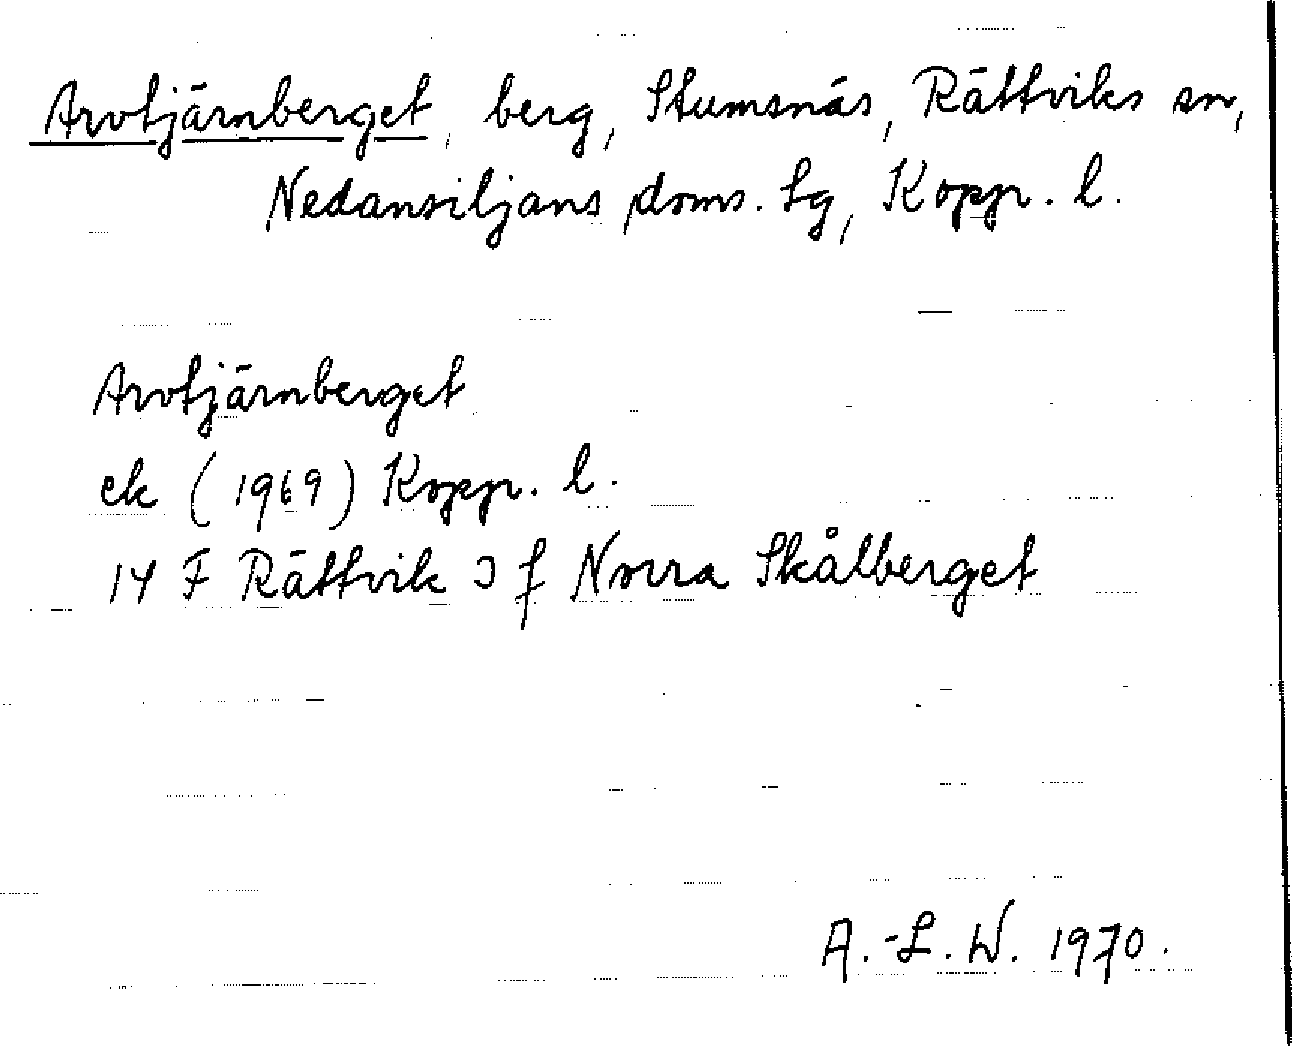 Arvtjärnberget, berg, Stumsnäs, Rättviks sn,
Nedansiljans doms. lg, Kopp. l.
Arvtjärnberget
ek (1969) Kopp. l.
14 F Rättvik J f Norra Skålberget
A.-L. W. 1970.